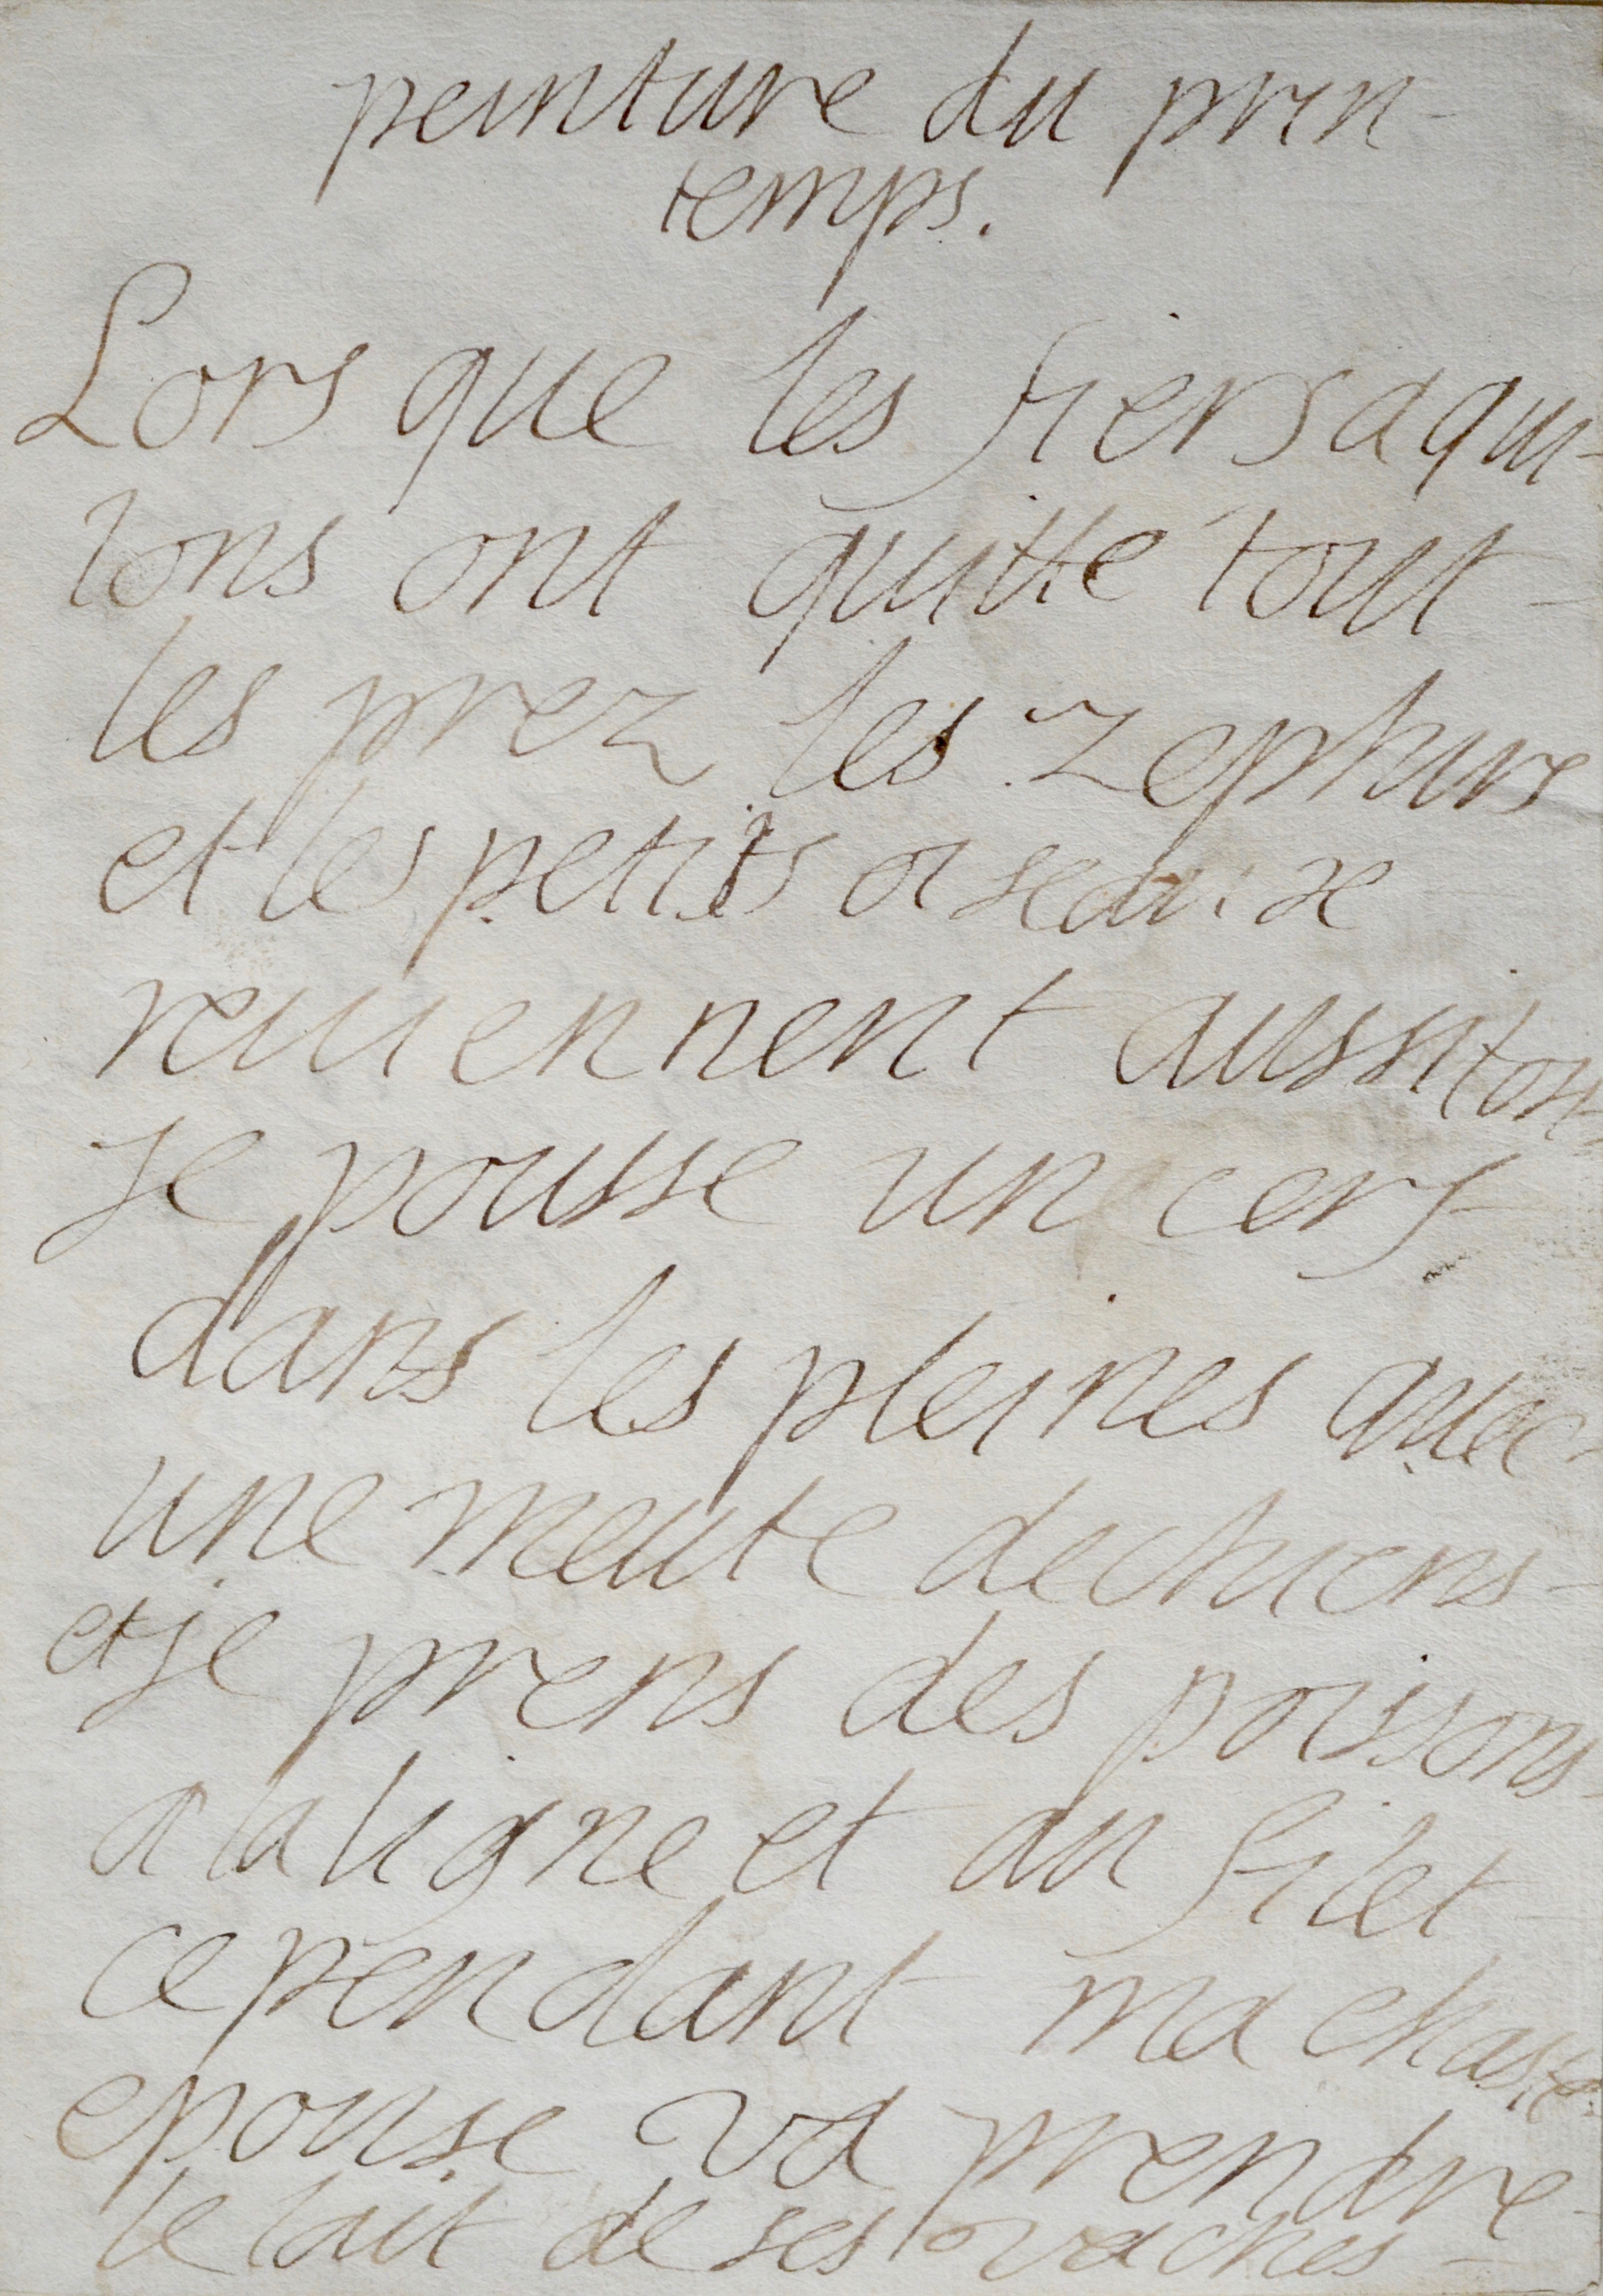 peinture du prin-
temps.
Lors que les fiers aqui-
lons ont quitté tout
les prez les zephirs
et les petits oiseau se
reuiennent aussi tou-
je pousse un cerf
dans les pleines auec
une meute de chiens
et je prens des poissons
a la ligne et au filet
cependant ma chaste
epouse va prendre
le lait de ses vaches